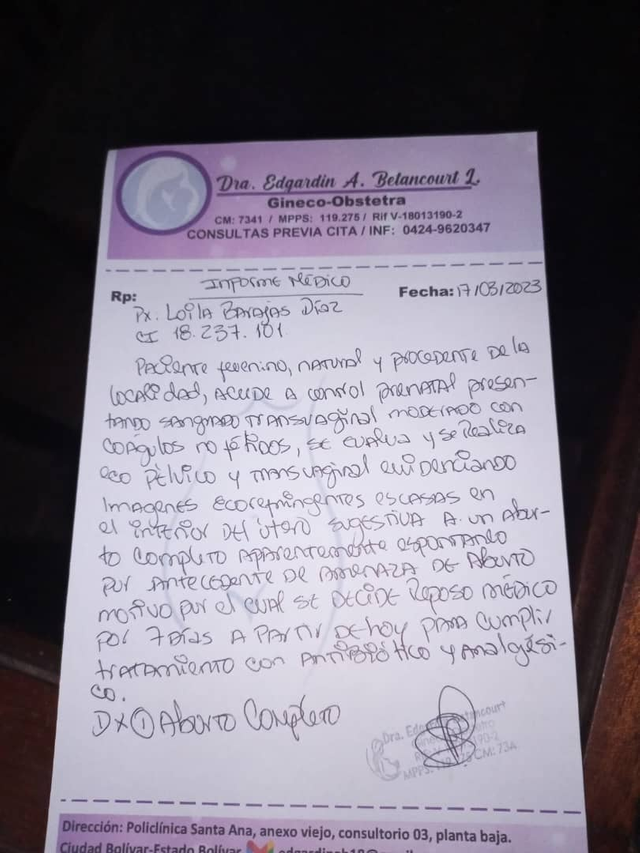 Dra. Edgardin A. Betancourt L.
Gineco-Obstetra
CM: 7341 / MPPS: 119.275 / Rif V-18013190-2
CONSULTAS PREVIA CITA / INF: 0424-9620347
Informe Médico
Rp:
Fecha: 17/03/2023
Px. Loila Barajas Díaz
CI 18.237.101
Paciente femenino, natural y procedente de la
localidad, acude a control prenatal presen-
tando sangrado transvaginal moderado con
coágulos no fétidos, se evalua y se realiza
eco pélvico y transvaginal evidenciando
imagenes ecorefringentes escasas en
el interior del útero sugestiva a un abor-
to completo aparentemente espontaneo
por antecedente de amenaza de aborto
motivo por el cual se decide reposo médico
por 7 días a partir de hoy para cumplir
tratamiento con antibiótico y analgési-
co.
Dx ① Aborto Completo
Dra. Edga Betancourt
MPPS: 119.275 CM: 734
Dirección: Policlínica Santa Ana, anexo viejo, consultorio 03, planta baja.
Ciudad Bolívar-Estado Bolívar